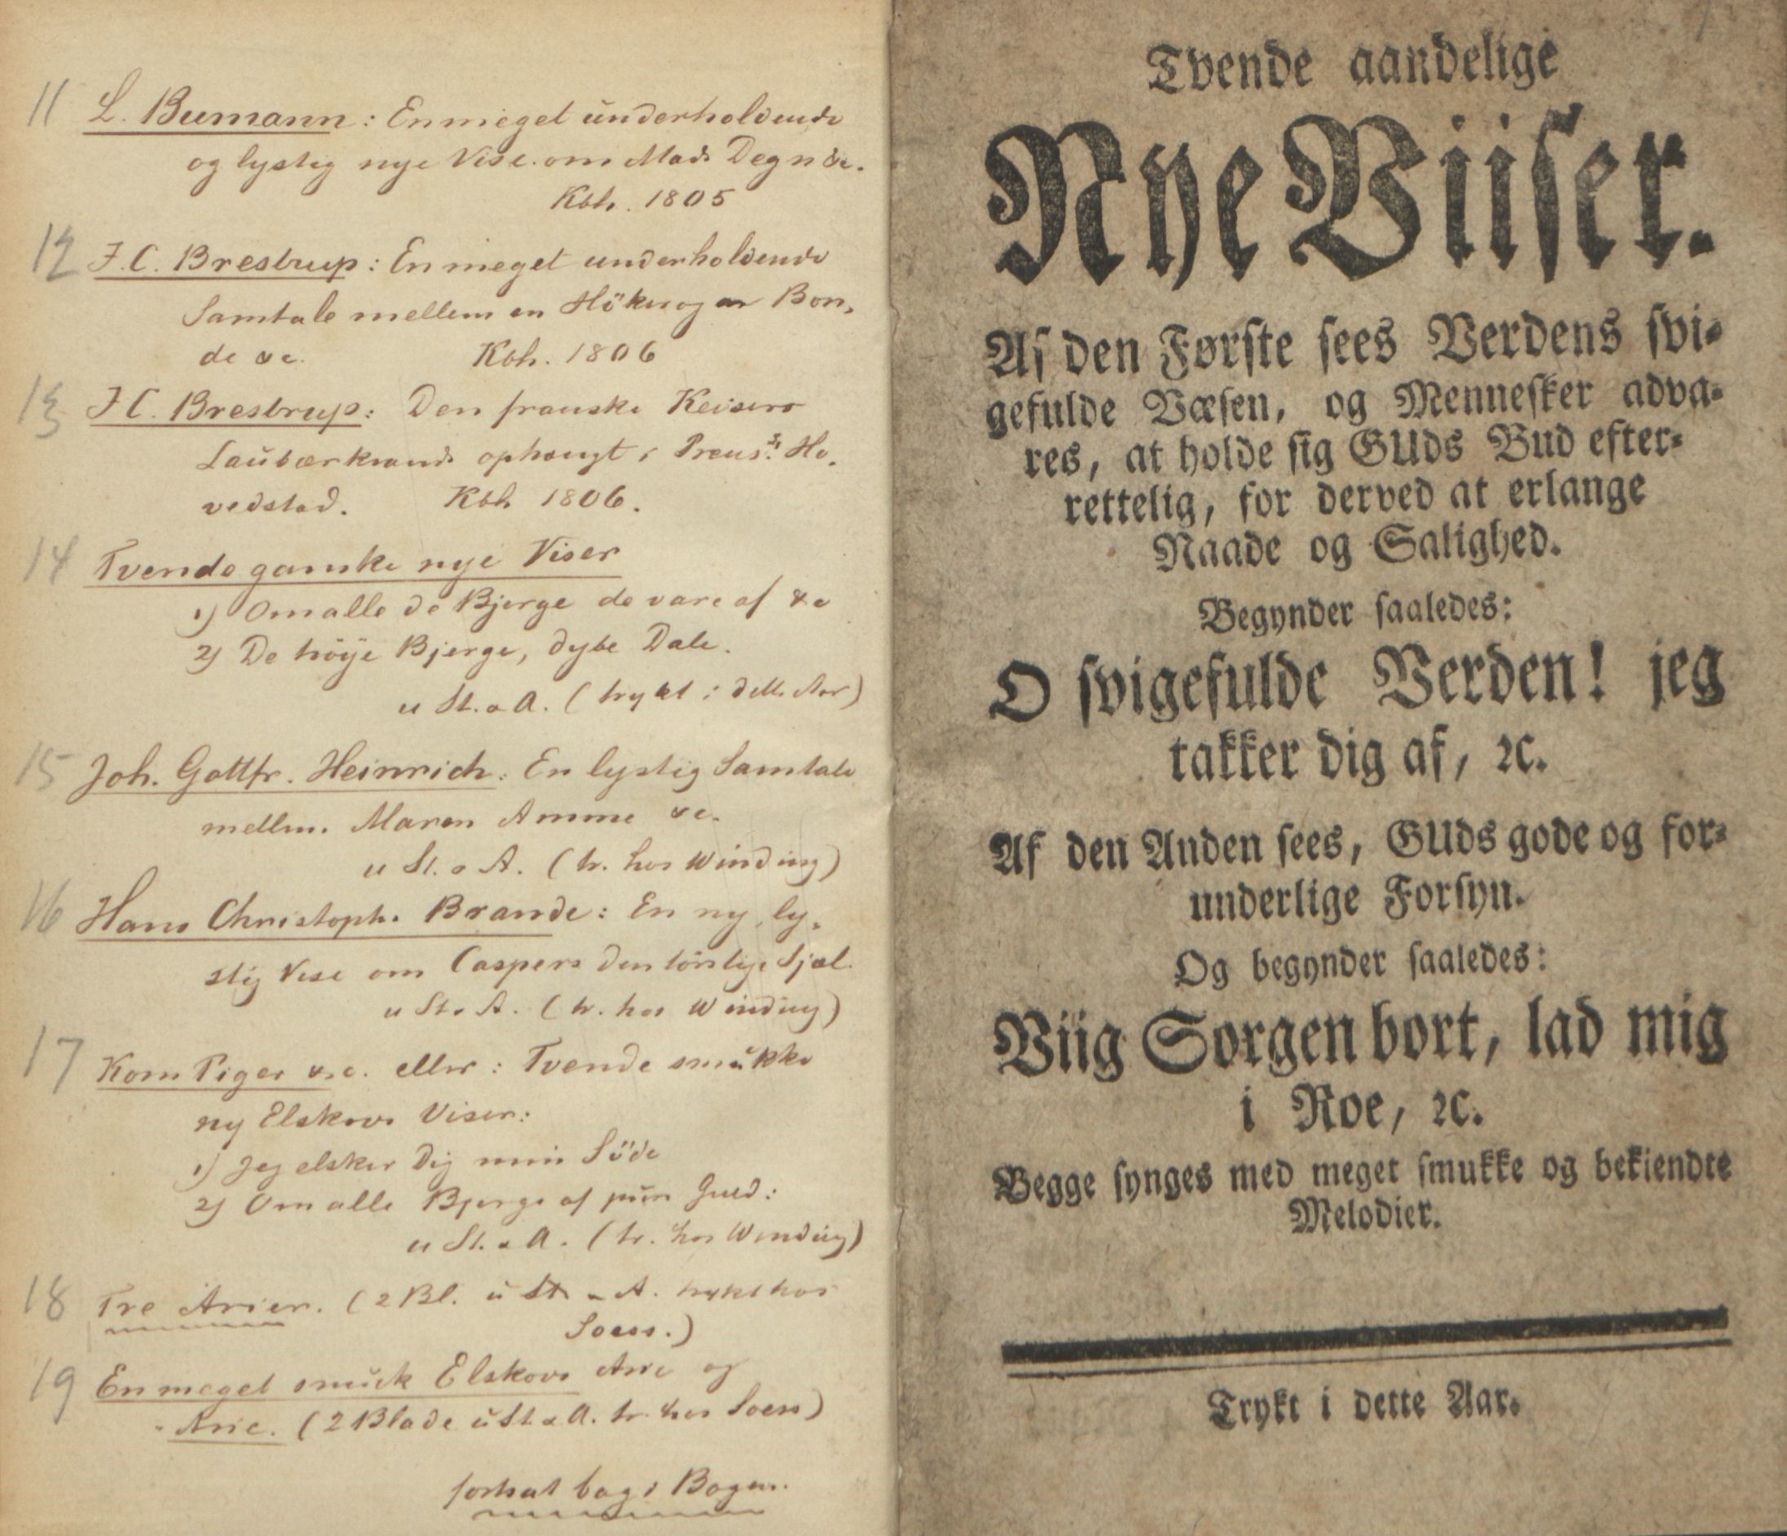 11 L. Bumann: En meget underholdende
og lystig nye Vise om Mads Degn &c.
Kbh. 1805
12 J.C. Brestrup: En meget underholdende
Samtale mellem en Höker og en Bon-
de &c. Kbh. 1806
13 J C. Brestrup: Den franske Keisers
Laubærkrands ophængt i Preus: Ho-
vedstad. Kbh 1806.
14 Tvende ganske nye Viser
1) Om alle de Bjerge de vare af &c
2) De höye Bjerge, dybe Dale.
u St. o A. (trykt i dette Aar)
15 Joh. Gottfr. Heinrich: En lystig Samtale
mellem Maren Amme &c.
u St. o A. (tr. hos Winding)
16 Hans Christoph. Brande: En ny ly-
stig Vise om Caspers den törstige Sjæl.
u St o A. (tr. hos Winding)
17 Kom Piger &c. eller: Tvende smukke
ny Elskovs Viser:
1) Jeg elsker Dig min Söde
2) Om alle Bjerge af puur Guld:
u St. o A. (tr. hos Winding)
18 Tre Arier. (2 Bl. u St o A. trykt hos
Soess.)
19 En meget smuk Elskovs Arie og
Arie. (2 Blade u St o A. tr. hos Soess)
fortsat bag i Bogen.
Tvende aandelige
Nye Viiser.
Af den Første sees Verdens svi-
gefulde Væsen, og Mennesker adva-
res, at holde sig GUds Bud efter-
rettelig, for derved at erlange
Naade og Salighed.
Begynder saaledes:
O svigefulde Verden! jeg
takker dig af, ꝛc.
Af den Anden sees, GUds gode og for-
underlige Forsyn.
Og begynder saaledes:
Viig Sorgen bort, lad mig
i Roe, ꝛc.
Begge synges med meget smukke og bekiendte
Melodier.
Trykt i dette Aar.